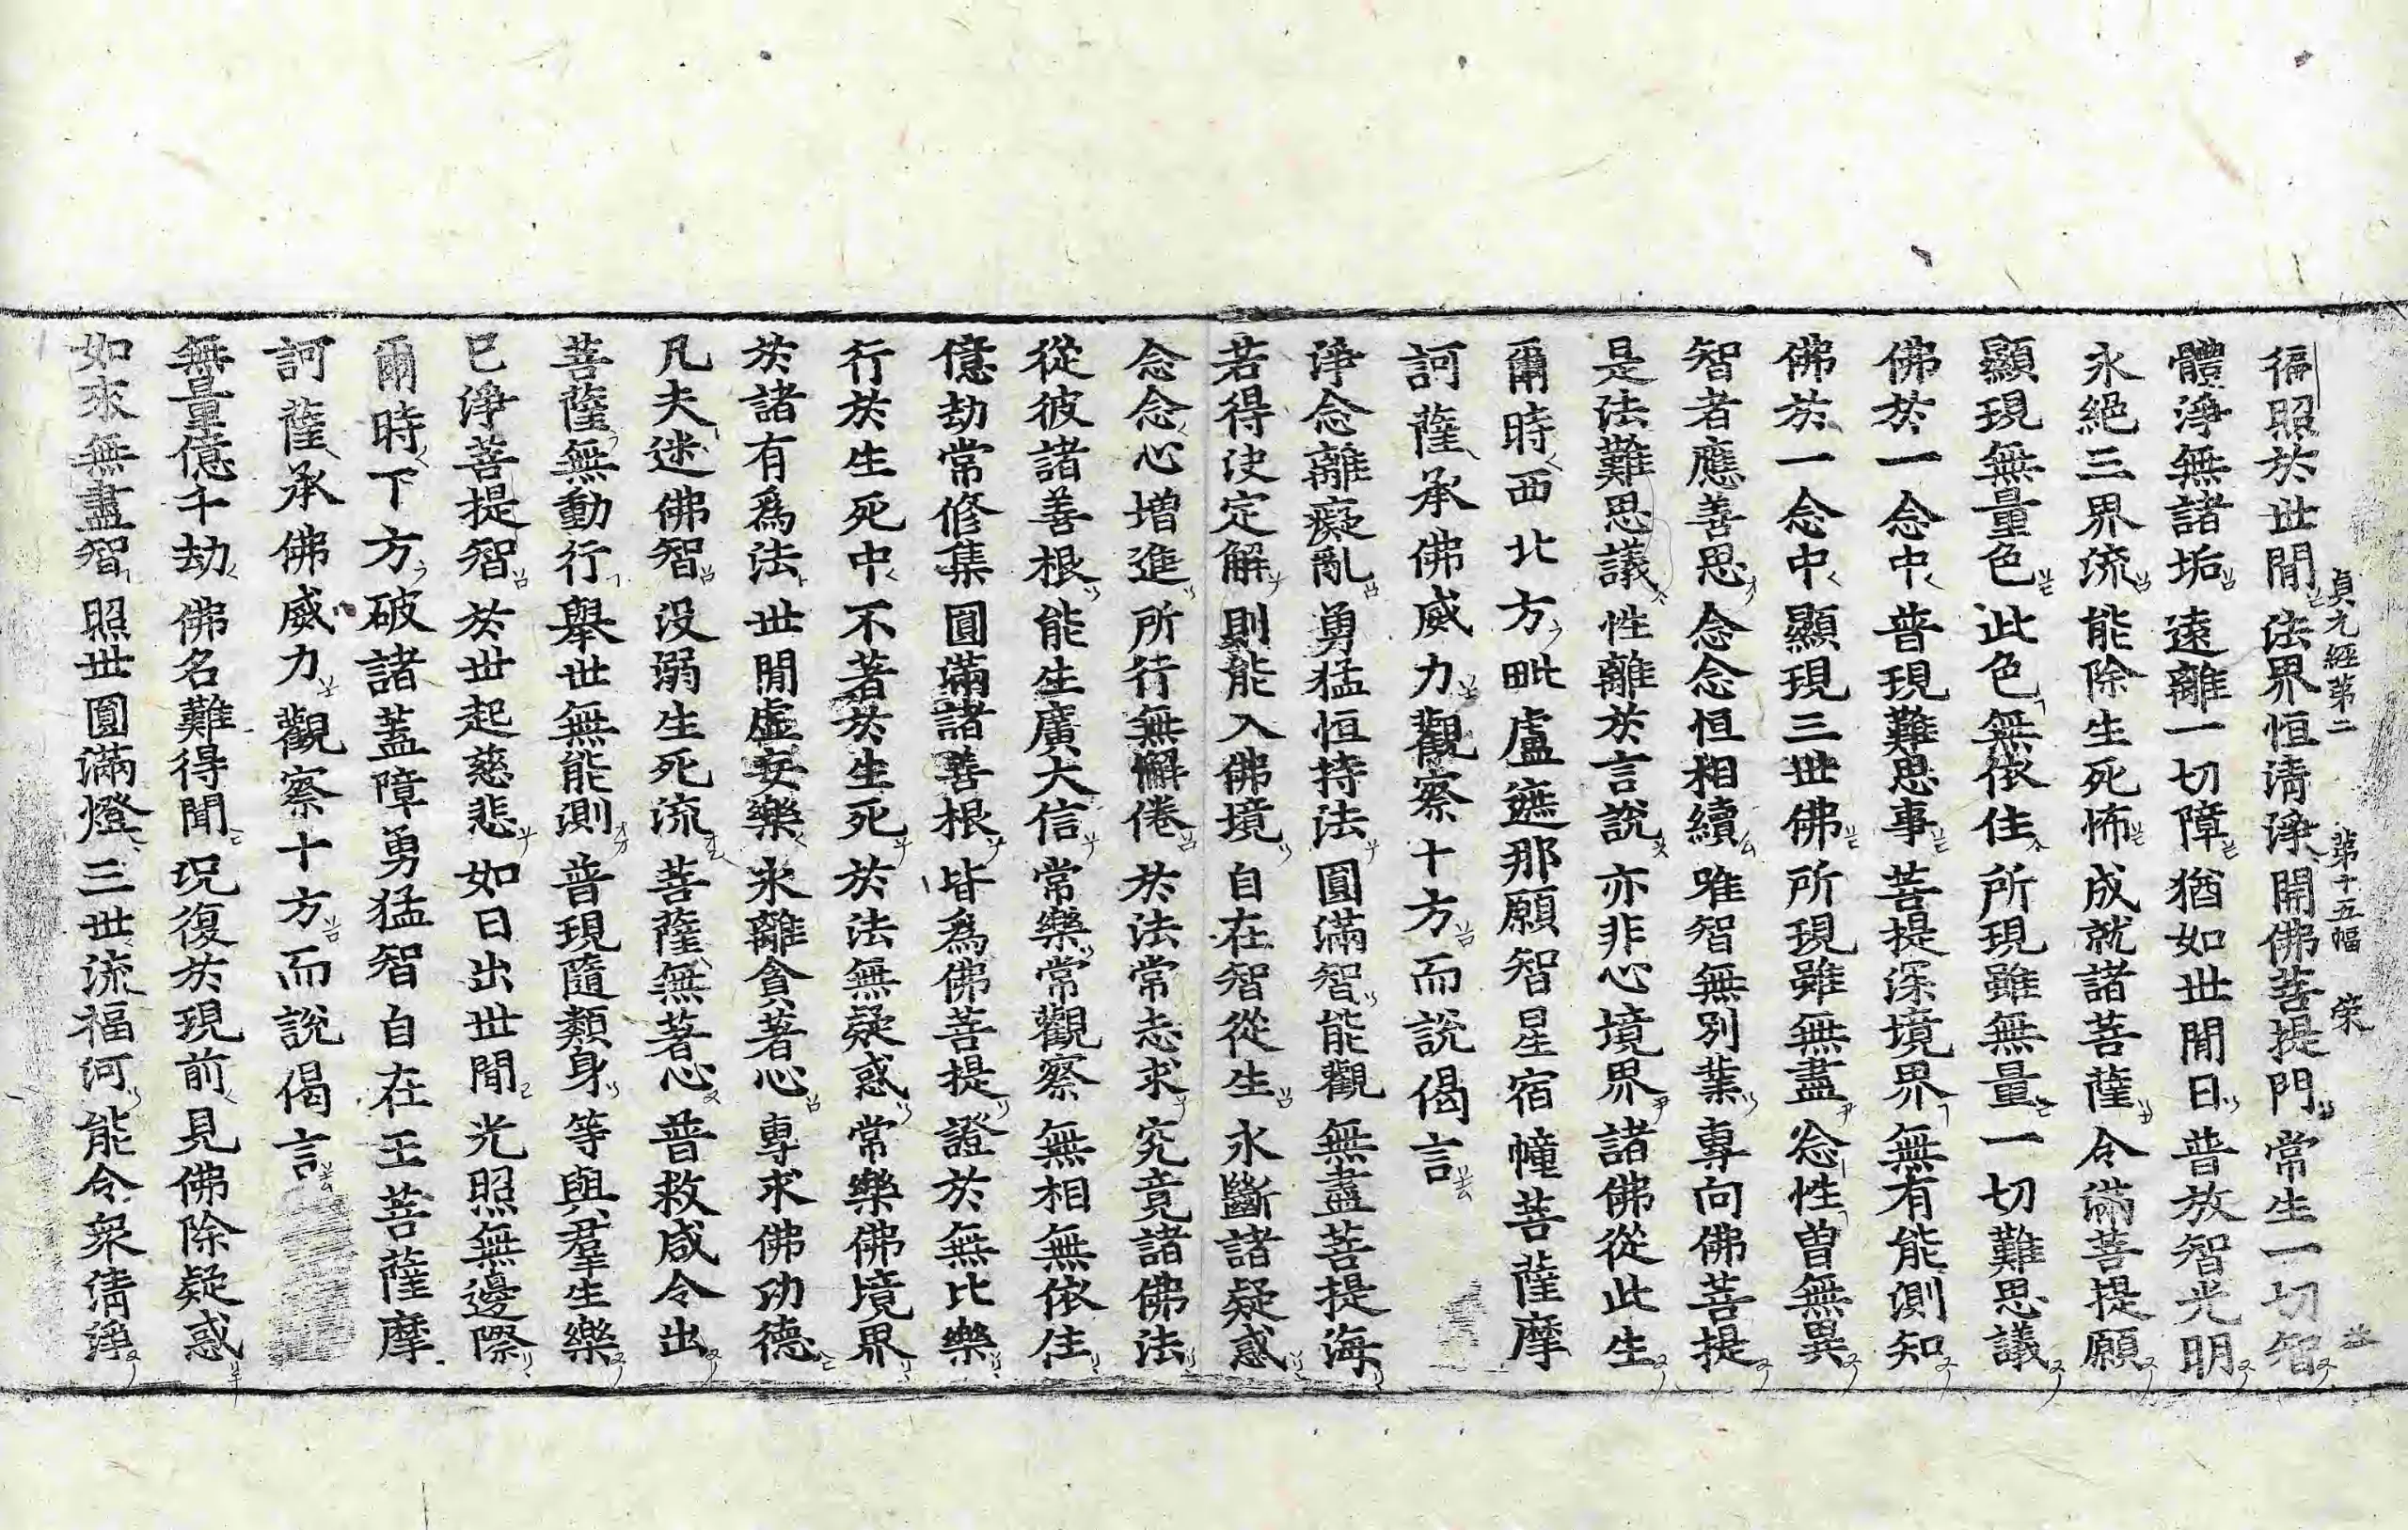 徧照於世閒 法界恒清淨 開佛菩提門 常生一切智
貞元經第二 第十五幅 荣
體淨無諸垢 遠離一切障 猶如世閒日 普放智光明
永絕三界流 能除生死怖 成就諸菩薩 令滿菩提願
顯現無量色 此色無依住 所現雖無量 一切難思議
佛於一念中 普現難思事 菩提深境界 無有能測知
佛於一念中 顯現三世佛 所現雖無盡 念性曾無異
智者應善思 念念恒相續 唯智無別業 專向佛菩提
是法難思議 性離於言說 亦非心境界 諸佛從此生
爾時西北方毗盧遮那願智星宿幢菩薩摩
訶薩承佛威力觀察十方而說偈言
淨念離癡亂 勇猛恒持法 圓滿智能觀 無盡菩提海
若得決定解 則能入佛境 自在智從生 永斷諸疑惑
念念心增進 所行無懈倦 於法常志求 究竟諸佛法
從彼諸善根 能生廣大信 常樂常觀察 無相無依住
億劫常修集 圓滿諸善根 皆爲佛菩提 證於無比樂
行於生死中 不著於生死 於法無疑惑 常樂佛境界
於諸有爲法 世閒虛妄樂 永離貪著心 專求佛功德
凡夫迷佛智 没溺生死流 菩薩無著心 普救咸令出
菩薩無動行 舉世無能測 普現隨類身 等與羣生樂
已淨菩提智 於世起慈悲 如日出世閒 光照無邊際
爾時下方破諸蓋障勇猛智自在王菩薩摩
訶薩承佛威力觀察十方而說偈言
無量億千劫 佛名難得聞 況復於現前 見佛除疑惑
如來無盡智 照世圓滿燈 三世流福河 能令衆清淨